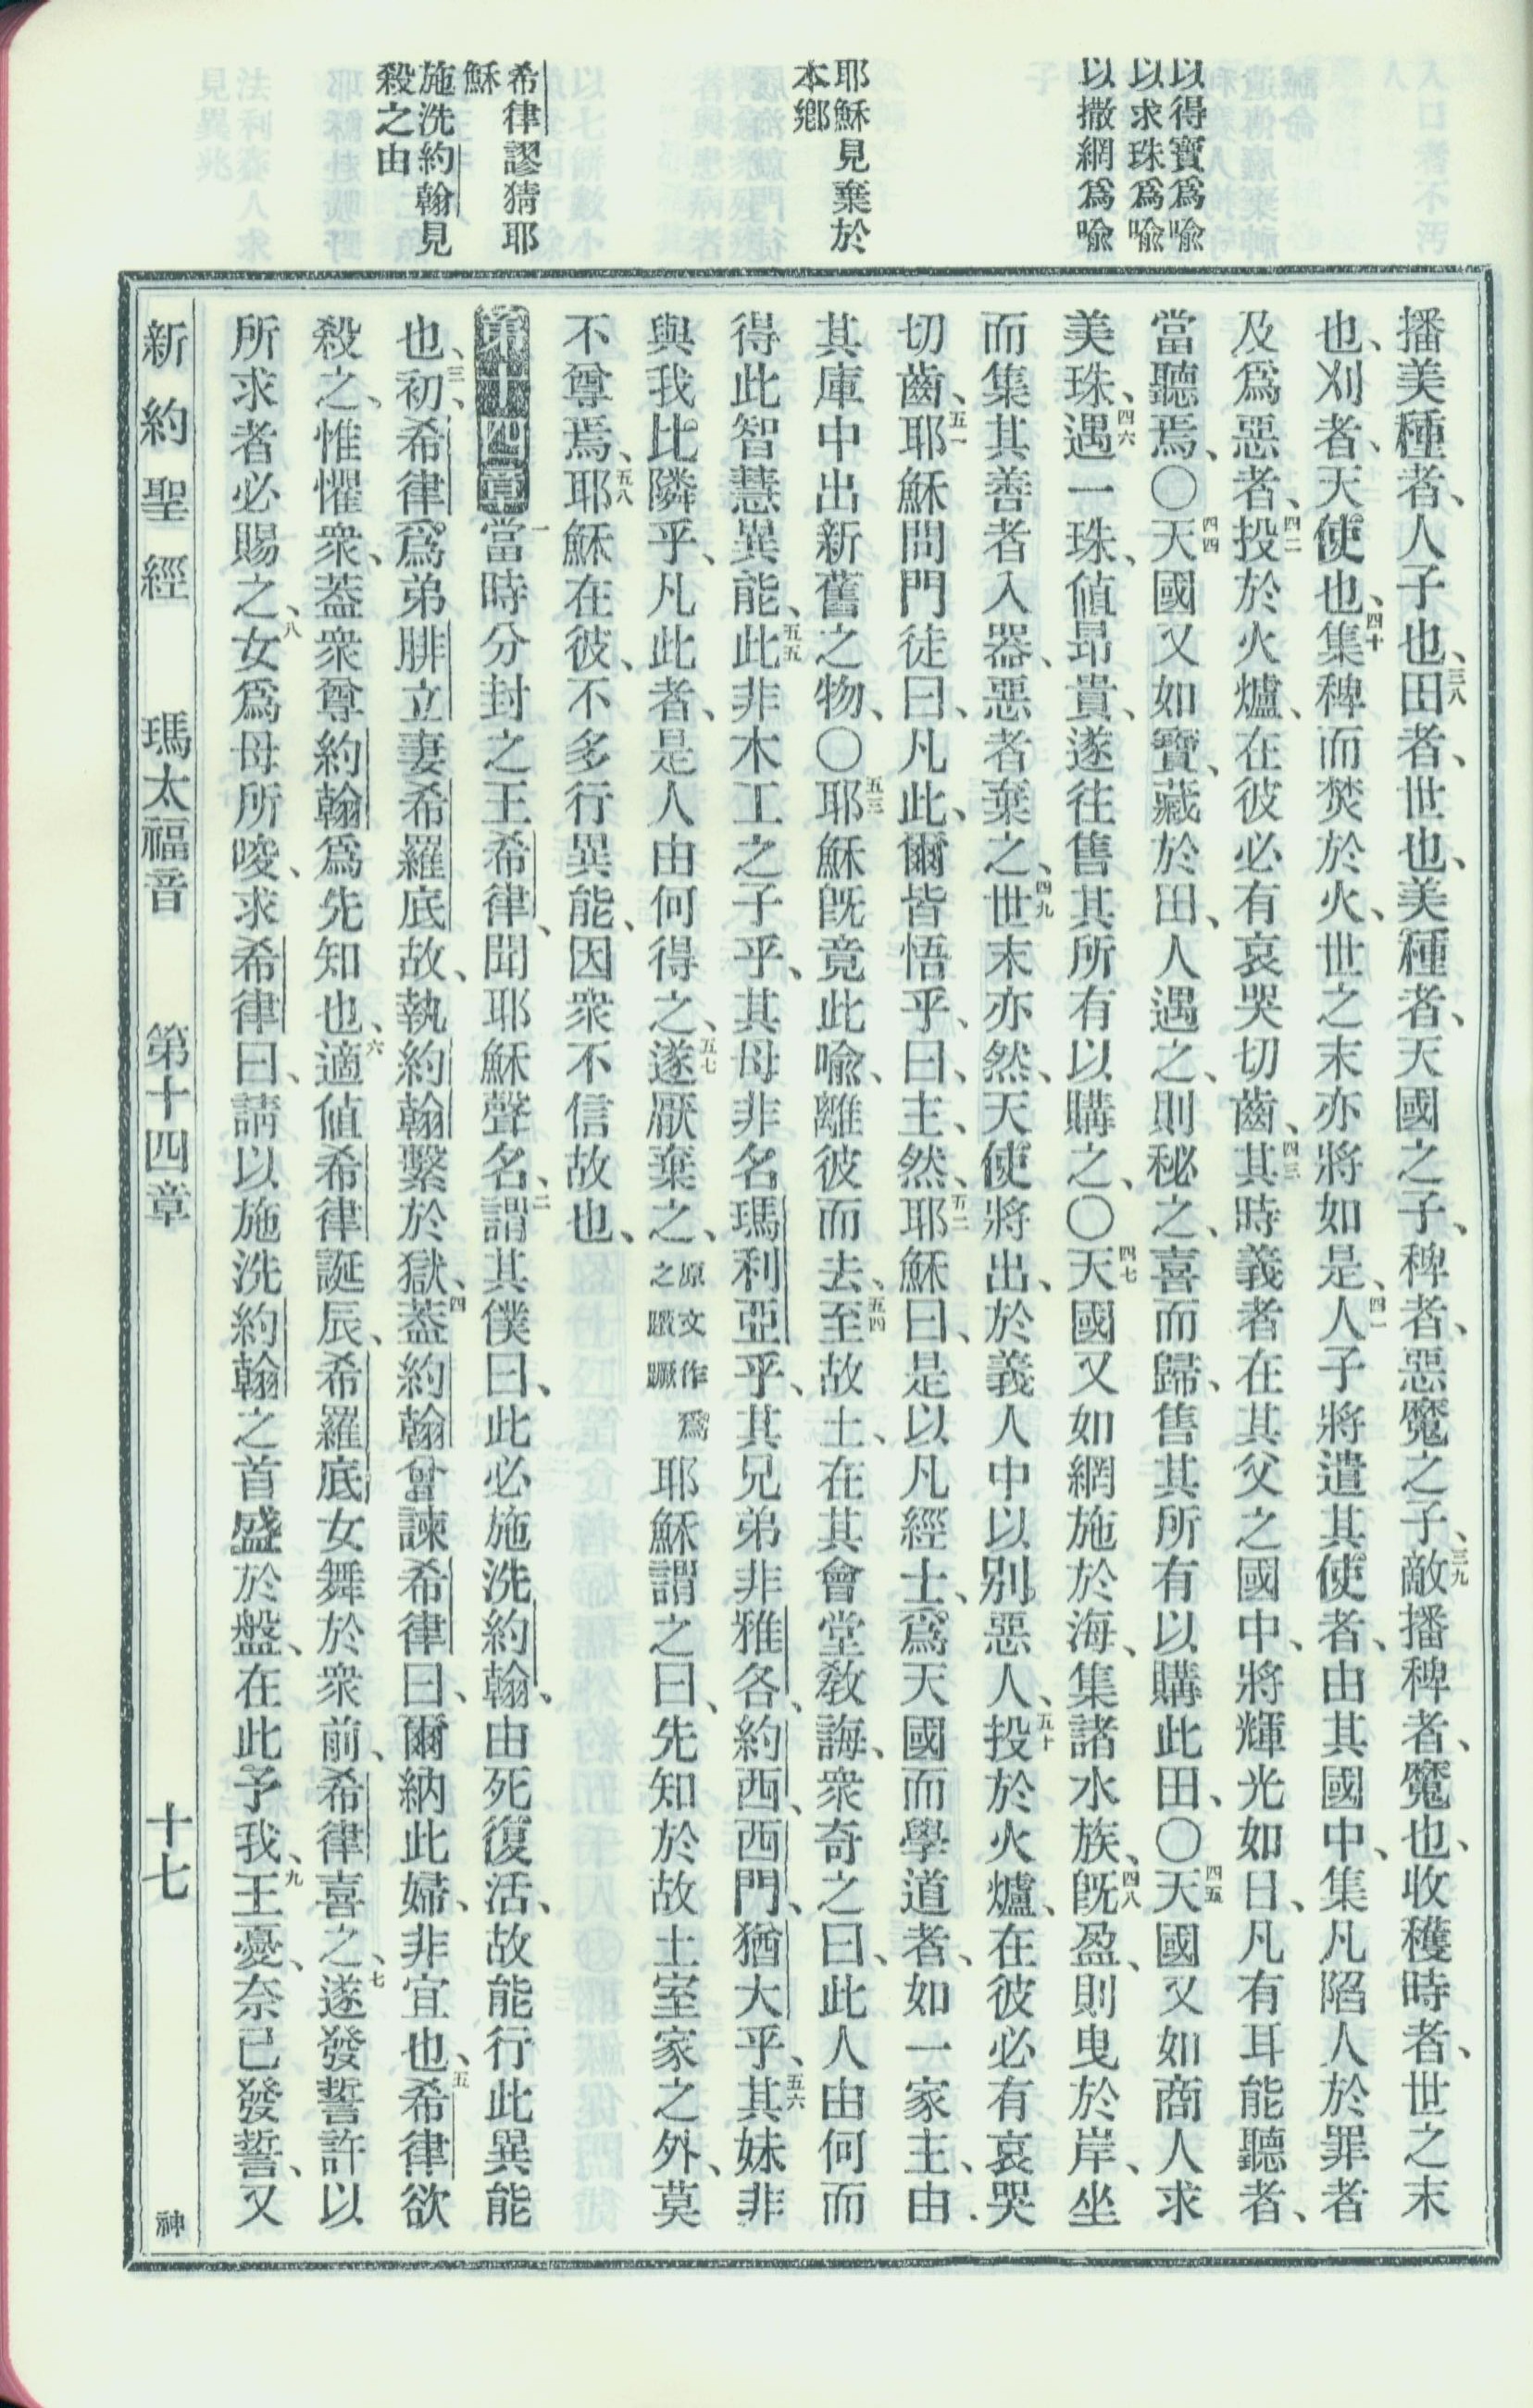 以得寶爲喩
以求珠爲喩
以撒網爲喩
耶穌見棄於
本鄕
希律謬猜耶
穌
施洗約翰見
殺之由
播美種者、人子也、三八田者、世也、美種者、天國之子、稗者、惡魔之子、三九敵播稗者、魔也、收穫時者、世之末
也、刈者、天使也、四十集稗而焚於火、世之末亦將如是、四一人子將遣其使者、由其國中、集凡陷人於罪者
及爲惡者、四二投於火爐、在彼必有哀哭切齒、四三其時義者在其父之國中、將輝光如日、凡有耳能聽者、
當聽焉、〇四四天國又如寶、藏於田、人遇之、則秘之、喜而歸、售其所有以購此田、〇四五天國又如商人求
美珠、四六遇一珠、値昂貴、遂往售其所有以購之、〇四七天國又如網施於海、集諸水族、四八旣盈、則曳於岸、坐
而集其善者入器、惡者棄之、四九世末亦然、天使將出、於義人中以別惡人、五十投於火爐、在彼必有哀哭
切齒、五一耶穌問門徒曰、凡此、爾皆悟乎、曰、主、然、五二耶穌曰、是以凡經士、爲天國而學道者、如一家主、由
其庫中出新舊之物、〇五三耶穌旣竟此喩、離彼而去、五四至故土、在其會堂敎誨、衆奇之曰、此人由何而
得此智慧異能、五五此非木工之子乎、其母非名瑪利亞乎、其兄弟非雅各、約西、西門、猶大乎、五六其妹非
與我比隣乎、凡此者、是人由何得之、五七遂厭棄之、原文作爲之躓蹶耶穌謂之曰、先知於故土室家之外、莫
不尊焉、五八耶穌在彼、不多行異能、因衆不信故也、
第十四章一當時分封之王希律、聞耶穌聲名、二謂其僕曰、此必施洗約翰、由死復活、故能行此異能
也、三初、希律爲弟腓立妻希羅底故、執約翰繫於獄、四蓋約翰曾諫希律曰、爾納此婦、非宜也、五希律欲
殺之、惟懼衆、蓋衆尊約翰爲先知也、六適値希律誕辰、希羅底女舞於衆前、希律喜之、七遂發誓許以
所求者必賜之、八女爲母所唆、求希律曰、請以施洗約翰之首盛於盤、在此予我、九王憂、奈已發誓、又
新約聖經 瑪太福音 第十四章 十七 神